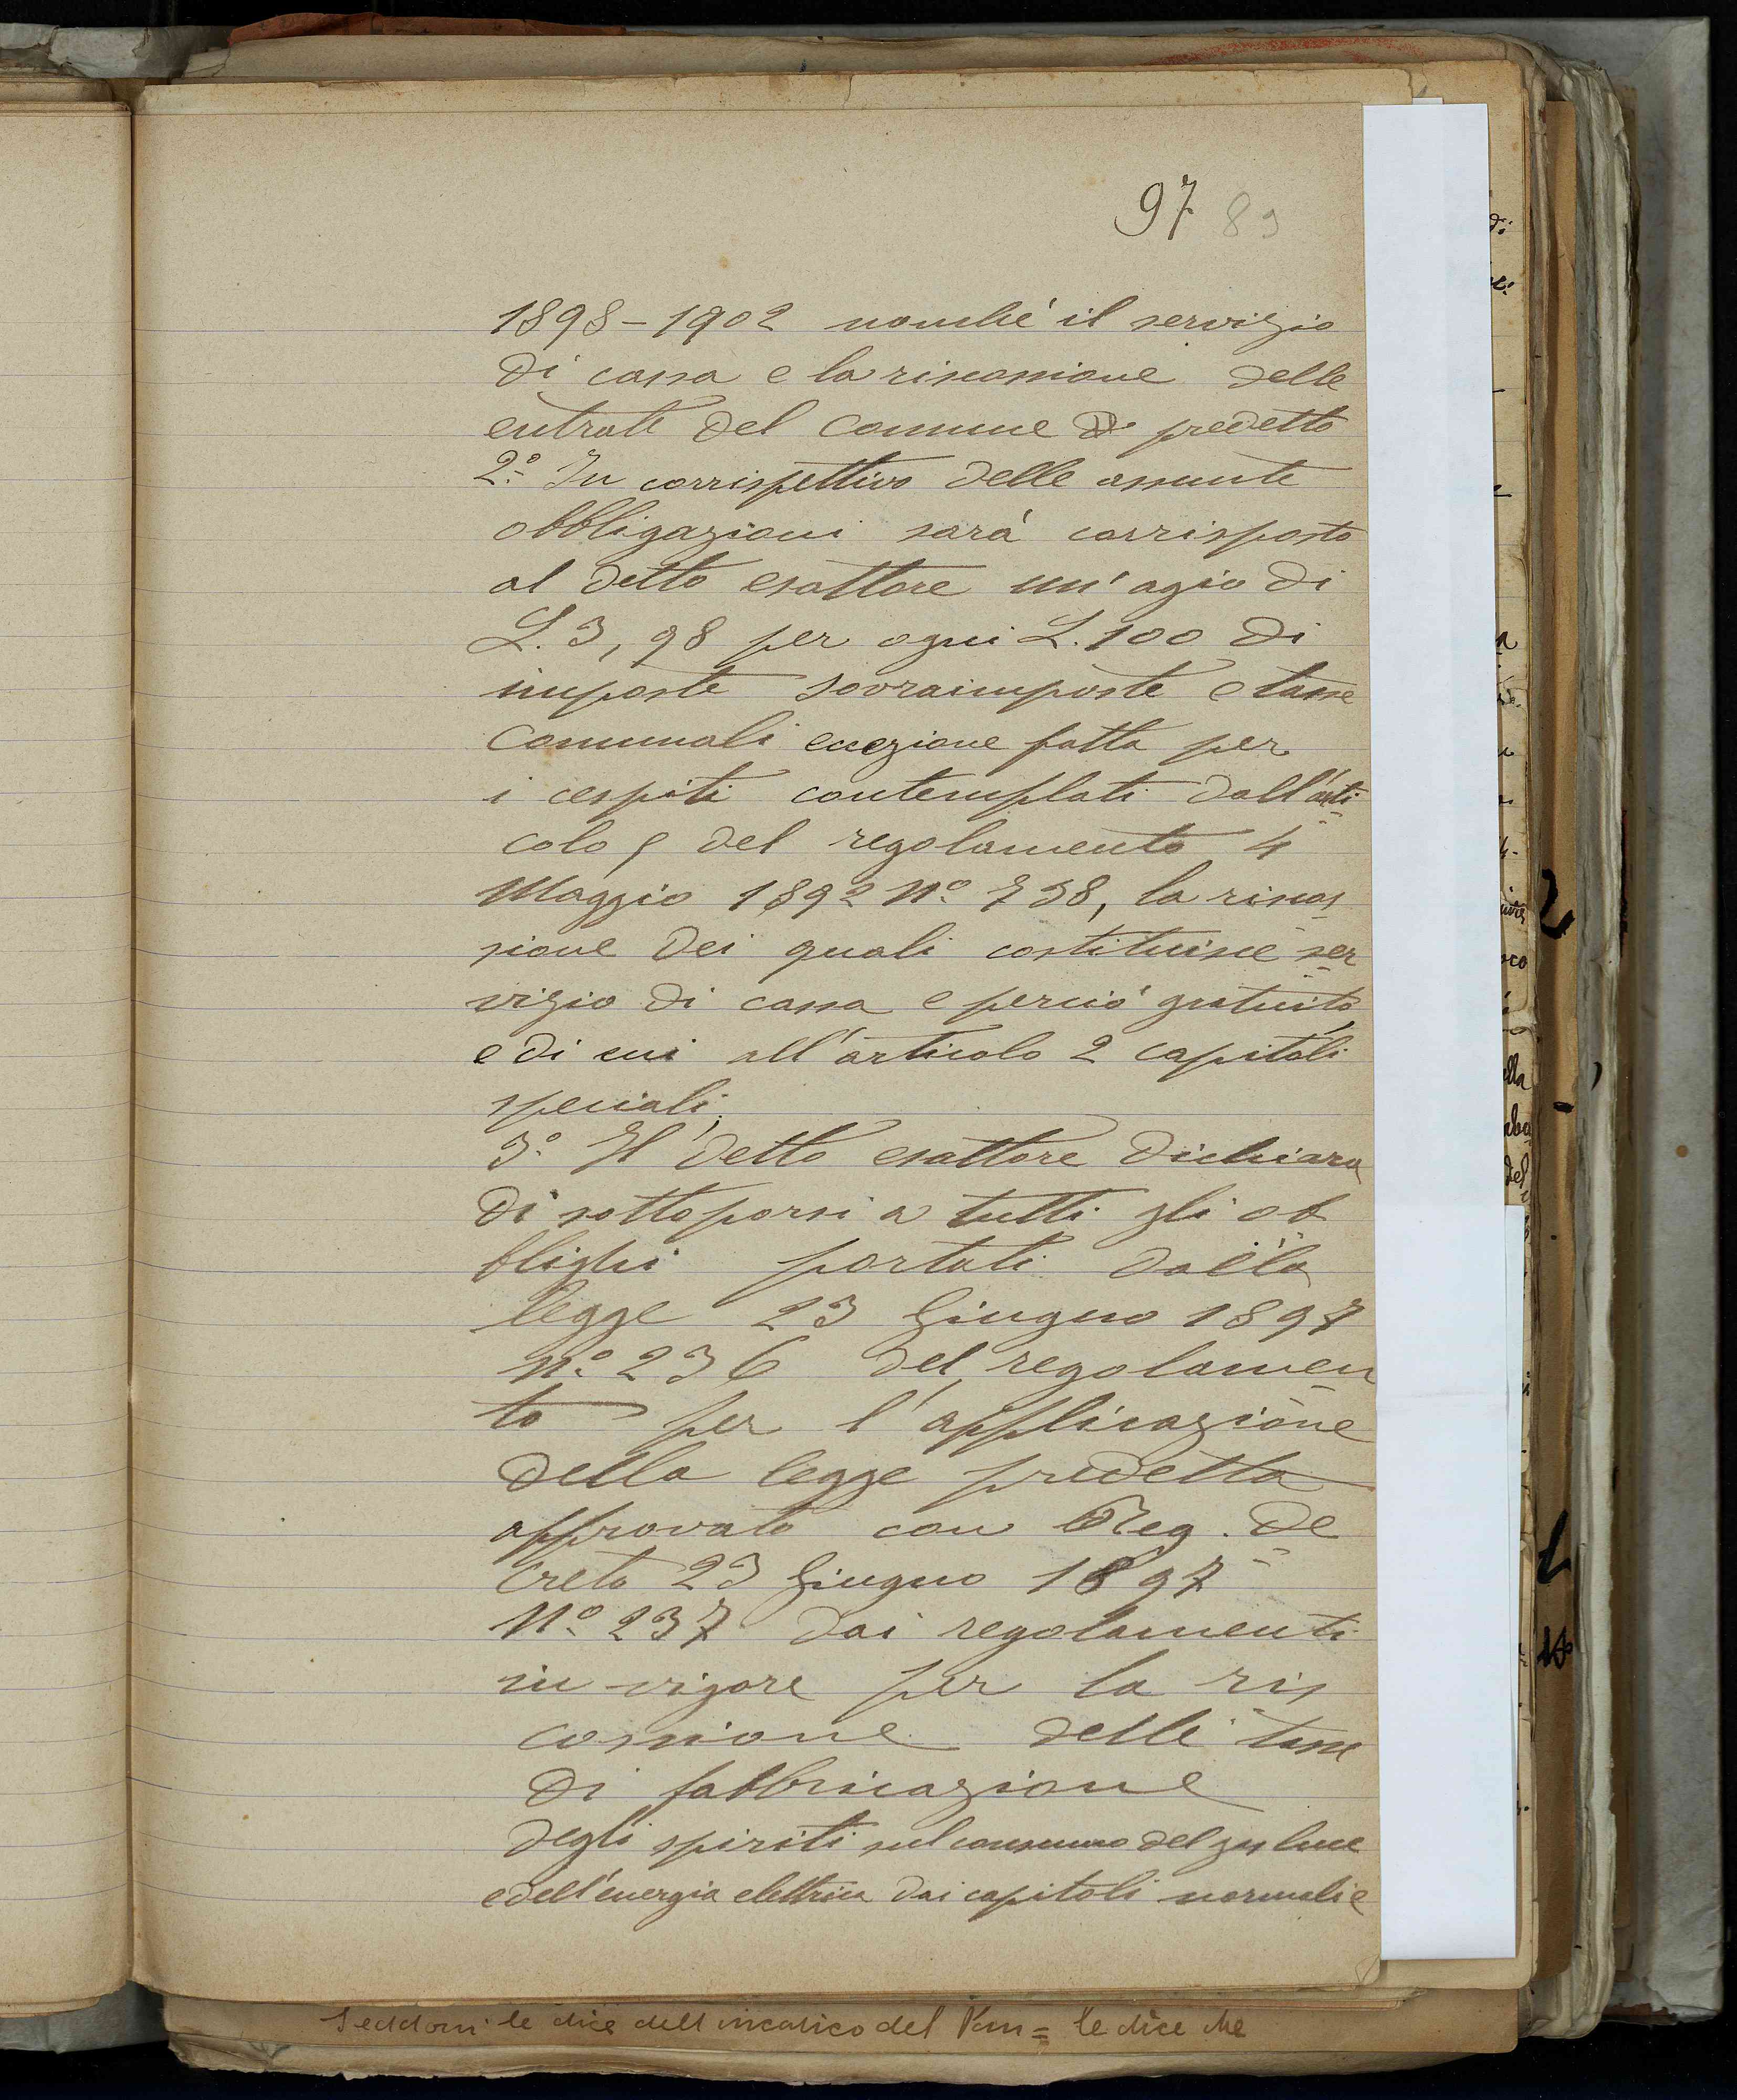 97 89
1898-1902 nonché il servizio
di cassa e la riscossione delle
entrate del Comune di predetto
2.° In corrispettivo delle assunte
obbligazioni sarà corrisposto
al detto esattore un'agio di
L. 3,98 per ogni L. 100 di
imposte sovraimposte e tasse
Comunali eccezione fatta per
i cespiti contemplati dall'arti
colo 5 del regolamento 4
Maggio 1892 N.° 738, la riscos
sione dei quali costituisce ser
vizio di cassa e perciò gratuito
e di cui all'articolo 2 capitoli
speciali;
3.° Il detto esattore dichiara
di sottoporsi a tutti gli ob
blighi portati dalla
legge 23 Giugno 1897
N.° 236 del regolamen
to per l'applicazione
della legge predetta
approvato con Reg. De
creto 23 Giugno 1897
N.° 237 dai regolamenti
in vigore per la ris
cossione delle tasse
di fabbricazione
degli spiriti sul consumo del gas luce
e dell'energia elettrica dai capitoli normali e
le dice dell'incarico del = le dice che